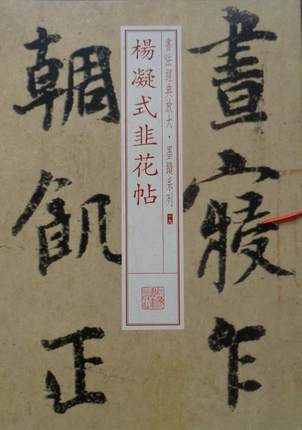 晝寢乍
書法經典放大·墨蹟系列
楊凝式韭花帖
輖飢正